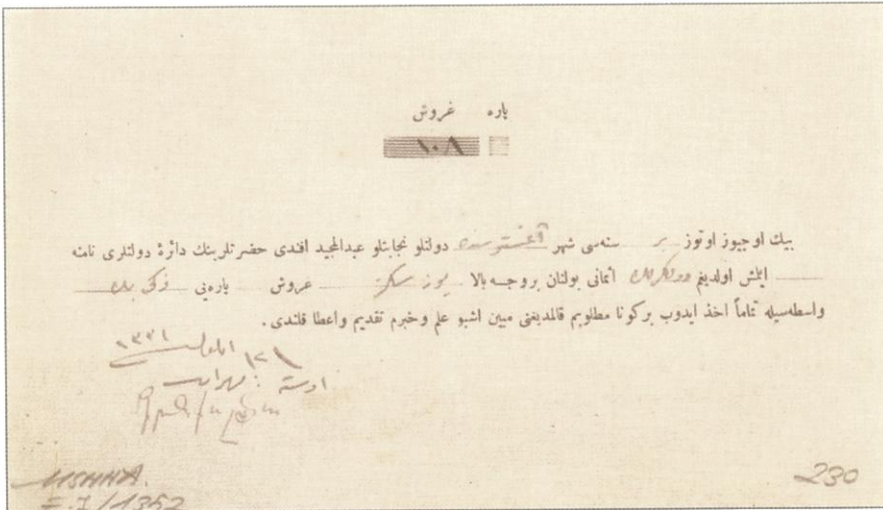 پاره غروش
١٠٨
بيك اوچيوز اوتوز بر سنه‌سى شهر آغستوسنده دولتلو نجابتلو عبدالمجيد افندى حضرتلرينك دائرهٔ دولتلرى نامنه
ايلمش اولديغم اثمانى بولنان بر وجه بالا يوز سكز غروش پاره‌يى زكى بك
واسطه‌سيله تماماً اخذ ايدوب بر كونا مطلوبم قالمديغنى مبين اشبو علم و خبرم تقديم و اعطا قلندى.
١٣٣١
اوسته مهران
230